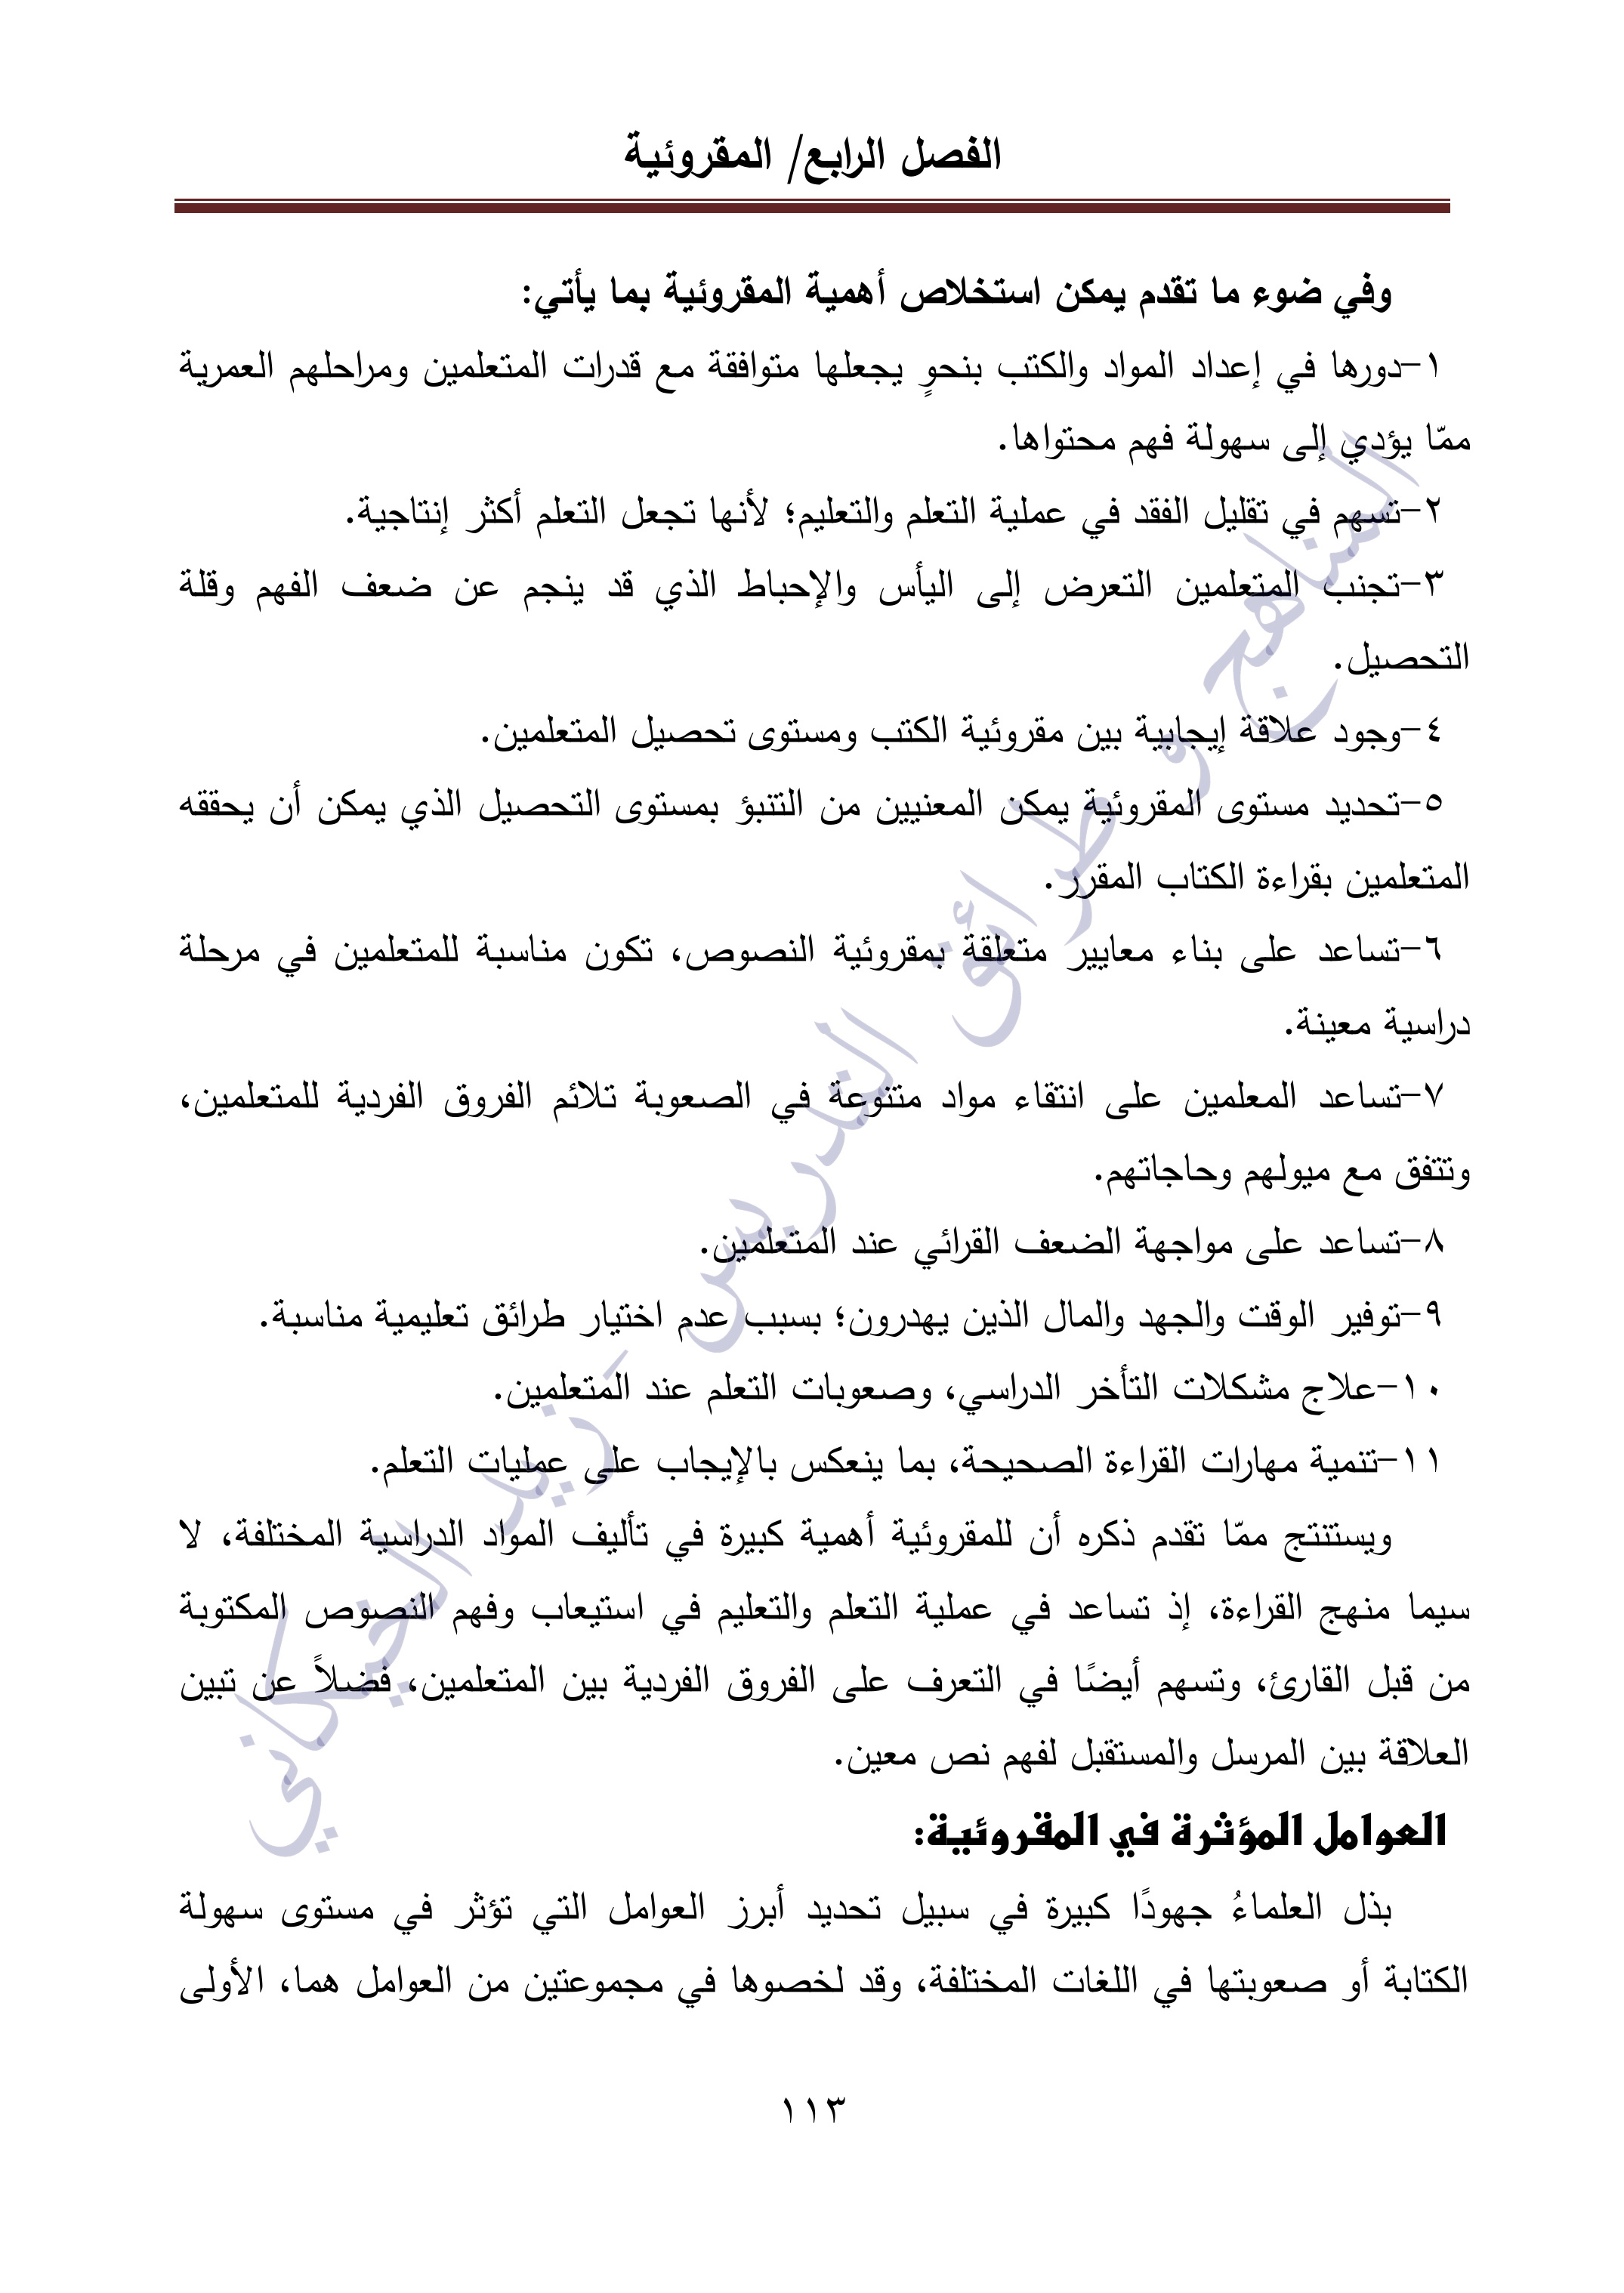 الفصل الرابع/ المقروئية
وفي ضوء ما تقدم يمكن استخلاص أهمية المقروئية بما يأتي:
١-دورها في إعداد المواد والكتب بنحوٍ يجعلها متوافقة مع قدرات المتعلمين ومراحلهم العمرية
ممّا يؤدي إلى سهولة فهم محتواها.
٢-تسهم في تقليل الفقد في عملية التعلم والتعليم؛ لأنها تجعل التعلم أكثر إنتاجية.
٣-تجنب المتعلمين التعرض إلى اليأس والإحباط الذي قد ينجم عن ضعف الفهم وقلة
التحصيل.
٤-وجود علاقة إيجابية بين مقروئية الكتب ومستوى تحصيل المتعلمين.
٥-تحديد مستوى المقروئية يمكن المعنيين من التنبؤ بمستوى التحصيل الذي يمكن أن يحققه
المتعلمين بقراءة الكتاب المقرر.
٦-تساعد على بناء معايير متعلقة بمقروئية النصوص، تكون مناسبة للمتعلمين في مرحلة
دراسية معينة.
٧-تساعد المعلمين على انتقاء مواد متنوعة في الصعوبة تلائم الفروق الفردية للمتعلمين،
وتتفق مع ميولهم وحاجاتهم.
٨-تساعد على مواجهة الضعف القرائي عند المتعلمين.
٩-توفير الوقت والجهد والمال الذين يهدرون؛ بسبب عدم اختيار طرائق تعليمية مناسبة.
١٠-علاج مشكلات التأخر الدراسي، وصعوبات التعلم عند المتعلمين.
١١-تنمية مهارات القراءة الصحيحة، بما ينعكس بالإيجاب على عمليات التعلم.
ويستنتج ممّا تقدم ذكره أن للمقروئية أهمية كبيرة في تأليف المواد الدراسية المختلفة، لا
سيما منهج القراءة، إذ تساعد في عملية التعلم والتعليم في استيعاب وفهم النصوص المكتوبة
من قبل القارئ، وتسهم أيضًا في التعرف على الفروق الفردية بين المتعلمين، فضلاً عن تبين
العلاقة بين المرسل والمستقبل لفهم نص معين.
العوامل المؤثرة في المقروئية:
بذل العلماءُ جهودًا كبيرة في سبيل تحديد أبرز العوامل التي تؤثر في مستوى سهولة
الكتابة أو صعوبتها في اللغات المختلفة، وقد لخصوها في مجموعتين من العوامل هما، الأولى
١١٣
المناهج وطرائق التدريس - زيد الخيكاني